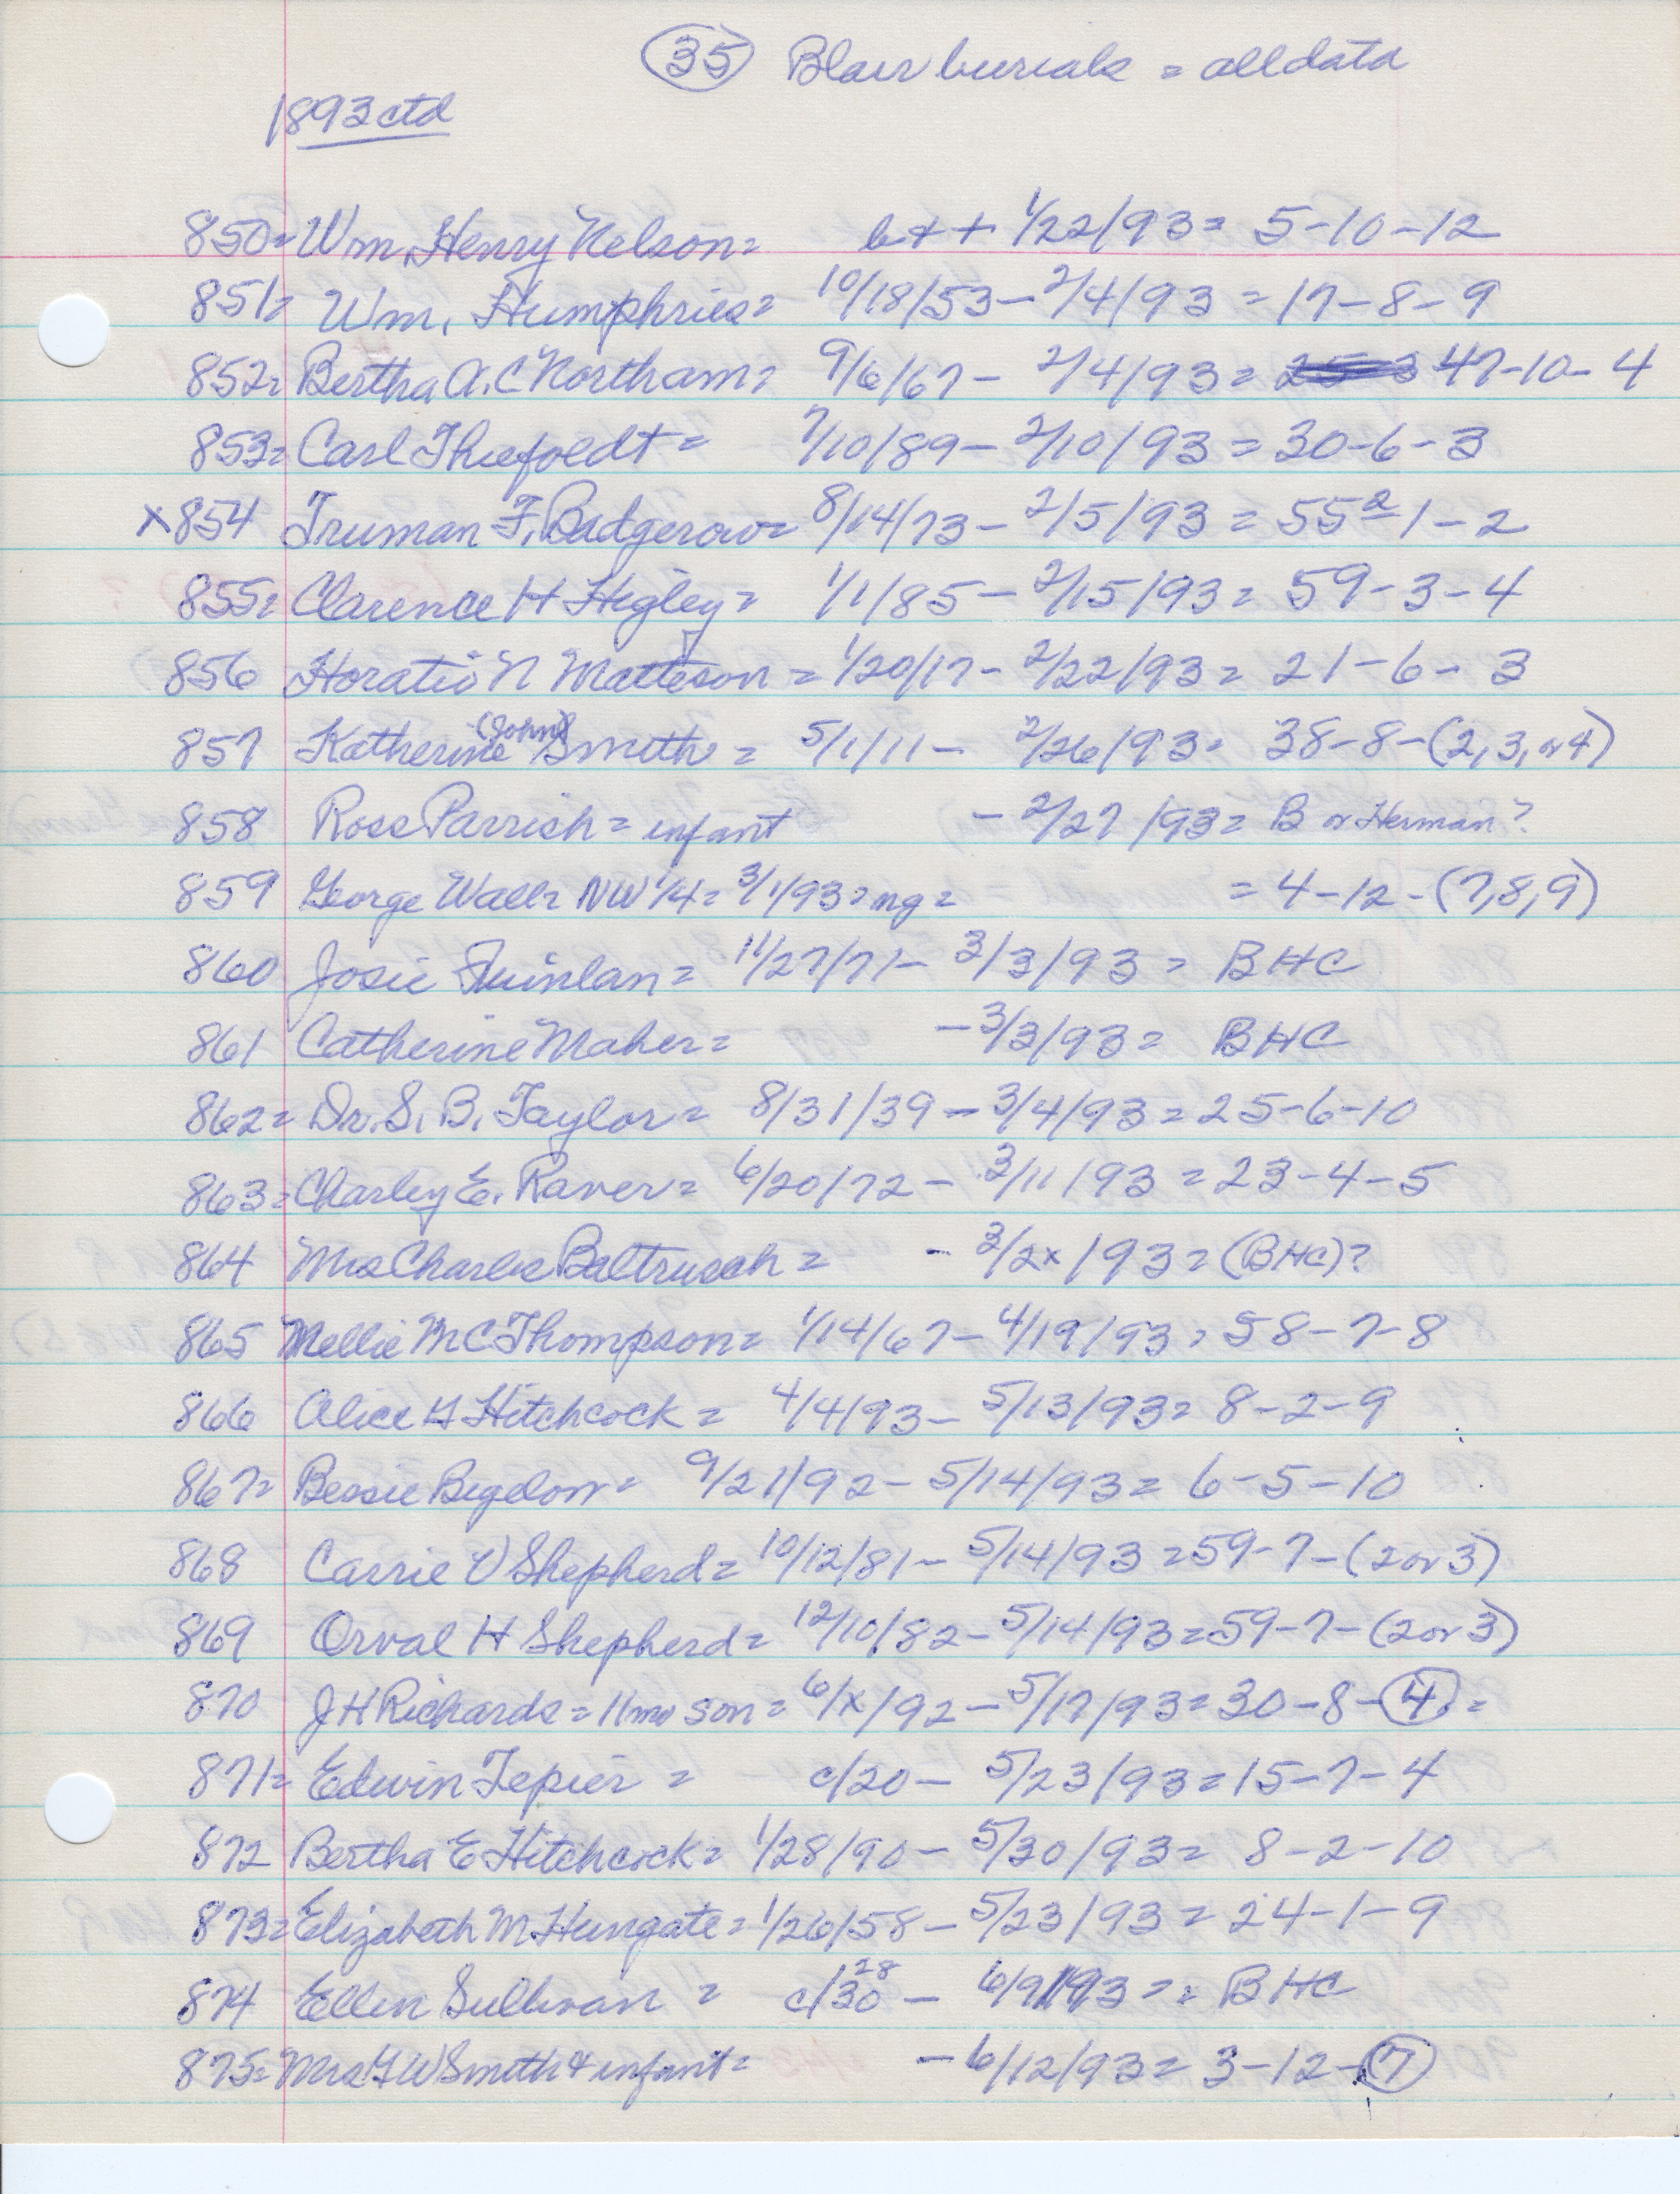 (35) Blair burials = all data
1893 ctd
850= Wm. Henry Nelson= b++ 1/22/93= 5-10-12
851= Wm. Humphries= 10/18/53- 2/4/93 = 17-8-9
852= Bertha A.C Northam= 9/6/67- 2/4/93= 47-10-4
853= Carl Thiefoldt= 7/10/89- 2/10/93=30-6-3
x854 Truman F. Badgerow= 8/14/73- 2/5/93=55-1-2
855= Clarence H Higley= 1/1/85- 2/15/93= 59-3-4
856 Horatio N Matteson = 1/20/17- 2/22/93= 21-6-3
857 Katherine (John) Smith = 5/1/11- 2/26/93= 38-8-(2,3, or 4)
858 Ross Parrish= infant -2/27/93= B or Herman?
859 George Wall= NW 1/4= 3/1/93=mg= = 4-12-(7,8,9)
860 Josie Quinlan= 11/27/71- 3/3/93= BHC
861 Catherine Maher= -3/3/93= BHC
862= Dr. S. B. Taylor= 8/31/39-3/4/93=25-6-10
863= Charley E. Raver= 6/20/72- 3/11/93=23-4-5
864 Mrs Charles Baltrusch = - 3/2x/93=(BHC)?
865 Mellie McThompson= 1/14/67-4/19/93= 58-7-8
866 Alice H Hitchcock= 4/4/93- 5/13/93= 8-2-9
867= Bessie Bigelow= 9/21/92- 5/14/93= 6-5-10
868 Carrie V Shepherd= 10/12/81- 5/14/93=59-7-(2 or 3)
869 Orval H Shepherd= 12/10/82-5/14/93=59-7-(2 or 3)
870 J H Richards= 11mo son= 6/x/92-5/17/93=30-8-(4) =
871= Edwin Tepier = c/20- 5/23/93=15-7-4
872 Bertha E Hitchcock= 1/28/90- 5/30/93= 8-2-10
873= Elizabeth M. Hungate= 1/26/58- 5/23/93=24-1-9
874 Ellen Sullivan = c/30 28 - 6/9/93= = BHC
875= Mrs G W Smith & infant= -6/12/93= 3-12-(7)